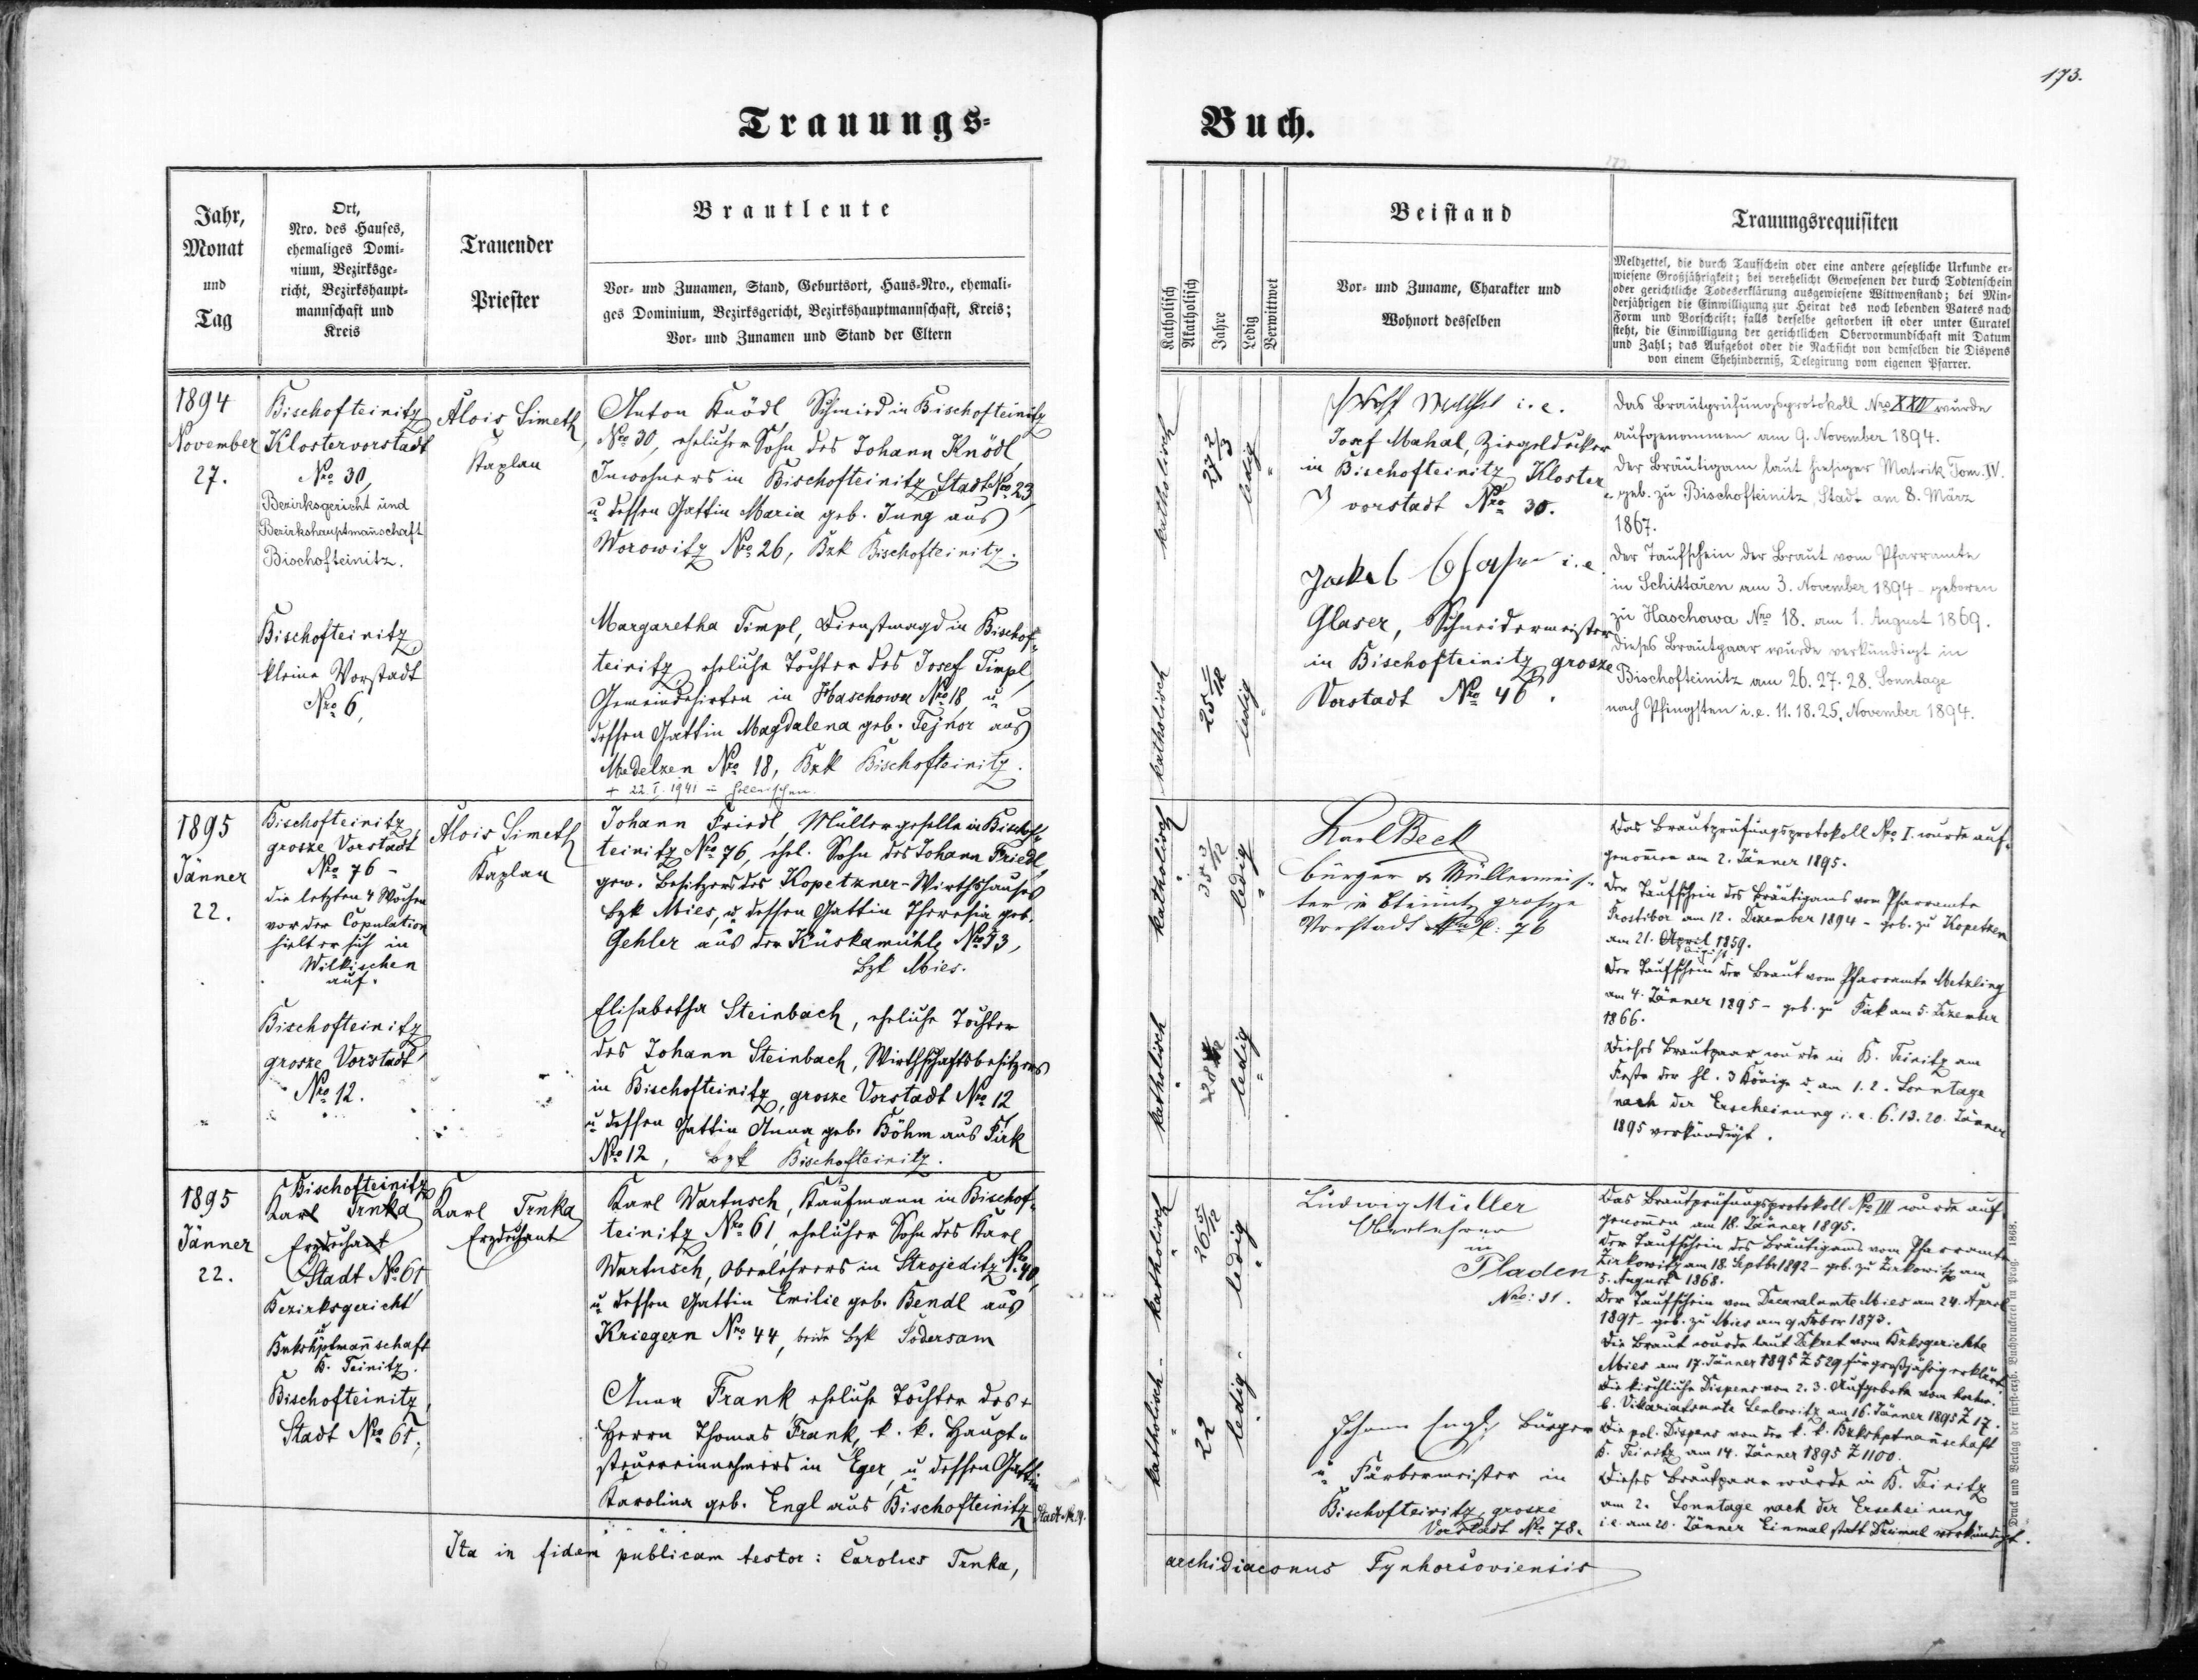 173.
Trauungs=
Buch.
Jahr,
Monat
und
Tag
Ort,
Nro. des Hauses,
ehemaliges Domi-
nium, Bezirksge-
richt, Bezirkshaupt-
mannschaft und
Kreis
Trauender
Priester
Brautleute
Vor- und Zunamen, Stand, Geburtsort, Haus-Nro., ehemali-
ges Dominium, Bezirksgericht, Bezirkshauptmannschaft, Kreis;
Vor- und Zunamen und Stand der Eltern
Katholisch
Akatholisch
Jahre
Ledig
Verwittwet
Beistand
Vor- und Zuname, Charakter und
Wohnort desselben
Trauungsrequisiten
Meldzettel, die durch Taufschein oder eine andere gesetzliche Urkunde er-
wiesene Großjährigkeit; bei verehelicht Gewesenen der durch Todtenschein
oder gerichtliche Todeserklärung ausgewiesene Wittwenstand; bei Min-
derjährigen die Einwilligung zur Heirat des noch lebenden Vaters nach
Form und Vorschrift; falls derselbe gestorben ist oder unter Curatel
steht, die Einwilligung der gerichtlichen Obervormundschaft mit Datum
und Zahl; das Aufgebot oder die Nachsicht von demselben die Dispens
von einem Ehehinderniß, Delegirung vom eigenen Pfarrer.
1894
November
27.
Bischofteinitz
Klostervorstadt
Nro 30,
Bezirksgericht und
Bezirkshauptmanschaft
Bischofteinitz.
Bischofteinitz
kleine Vorstadt
Nro 6,
Alois Simeth,
Kaplan
Anton Knödl Schmied in Bischofteinitz
Nro 30, ehelicher Sohn des Johann Knödl
Inwohners in Bischofteinitz Stadt Nro 23
u dessen Gattin Maria geb. Jung aus
Worowitz Nro 26, Bzk Bischofteinitz.
Margaretha Timpl, Dienstmagd in Bischof-
teinitz eheliche Tochter des Josef Timpl,
Gemeindehirten in Haschowa Nro 18, u
dessen Gattin Magdalena geb. Tejnor aus
Medelzen Nro 18, Bzk Bischofteinitz.
+ 22. I. 1941 in Holleischen.
katholisch
27 2/3
ledig
katholisch
25
ledig
i. e.
Josef Mahal, Ziegeldecker
in Bischofteinitz Kloster-
vorstadt Nro 30.
Jakob Glaser i. e.
Glaser, Schneidermeister
in Bischofteinitz grosze
Vorstadt Nro 46.
Das Brautprüfungsprotokoll Nro XXIV wurde
aufgenommen am 9. November 1894.
Der Bräutigam laut hiesiger Matrik Tom. IV.
geb. zu Bischofteinitz, Stadt am 8. März
1867.
Der Taufschein der Braut vom Pfarramte
in Schittaren am 3. November 1894 - geboren
zu Haschowa Nro 18. am 1. August 1869.
Dieses Brautpaar wurde verkündigt in
Bischofteinitz am 26. 27. 28. Sonntage
nach Pfingsten i. e. 11. 18. 25. November 1894.
1895
Jänner
22.
Bischofteinitz,
grosze Vorstadt
Nro 76 -
die letzten 4 Wochen
vor der Copulation
hielt er sich in
Wilkischen
auf.
Bischofteinitz
grosze Vorstadt
Nro 12.
Alois Simeth
Kaplan
Johann Friedl, Müllergeselle in Bischof-
teinitz Nro 76, ehel. Sohn des Johann Friedl,
gew. Besitzers des Kopetzner-Wirthshauses
Bzk Mies, u dessen Gattin Theresia geb.
Gehler aus der Küskamühle Nro 53,
Bzk Mies.
Elisabetha Steinbach, eheliche Tochter
des Johann Steinbach, Wirthschaftsbesitzers
in Bischofteinitz, grosze Vorstadt Nro 12
u dessen Gattin Anna geb. Böhm aus Firk
Nro 12, Bzk Bischofteinitz.
katholisch
ledig
katholisch
28
ledig
Karl Beck
Bürger & Müllermeis-
ter in Bteinitz grosze
Vorstadt 76
Das Brautprüfungsprotokoll Nro I. wurde auf-
genomen am 2. Jänner 1895.
Der Taufschein des Bräutigams vom Pfarramte
Prostibor am 12. Dezember 1894 - geb. zu Kopetzen
am 21. April 1859.
August
Der Taufschein der Braut vom Pfarramte Metzling
am 4. Jänner 1895 - geb. zu Firk am 5. Dezember
1866.
Dieses Brautpaar wurde in B. Teinitz am
Feste der hl. 3 Könige u. am 1. 2. Sonntage
nach der Erscheinung i. e. 6. 13. 20. Jänner
1895 verkündigt.
1895
Jänner
22.
Bischofteinitz
Karl Trnka
Erzdechant
Stadt No 61
Bezirksgericht
u
Bzkshptmannschaft
B. Teinitz.
Bischofteinitz,
Stadt Nro 65,
Karl Trnka
Erzdechant
Karl Wartusch, Kaufmann in Bischof-
teinitz Nro 61, ehelicher Sohn des Karl
Wartusch, Oberlehrers in Strojeditz No 40,
u dessen Gattin Emilie geb. Bendl aus
Kriegern Nro 44, beide Bzk Podersam
Anna Frank eheliche Tochter des
Herrn Thomas Frank, k. k. Haupt-
steuereinnehmers in Eger, u dessen Gattin
Karolina geb. Engl aus Bischofteinitz Stadt
katholisch
26 5/12
ledig
katholisch
22
ledig
Ludwig Müller
Oberlehrer
in
Pladen
Nro: 31.
Johann Engl, Bürger
u Färbermeister in
Bischofteinitz, grosze
Vorstadt Nro 78.
Das Brautprüfungsprotokoll No III wurde auf-
genomen am 18. Jänner 1895.
Der Taufschein des Bräutigams vom Pfarramte
Zirkowitz am 18. Septbr 1892 - geb. zu Zirkowitz am
5. August 1868.
Der Taufschein vom Decanalamte Mies am 24. April
1895 - geb. zu Mies am 9. Feber 1873.
Die Braut wurde laut Dekret vom Bzksgerichte
Mies am 17. Jänner 1895 Z 529 für großjährig erklärt.
Die kirchliche Dispens von 2. 3. Aufgebote vom
b. Vikariatsamte am 16. Jänner 1895 Z 17.
Die pol. Dispens von der k. k. Bzkshptmannschaft
B. Teinitz am 14. Jänner 1895 Z 1100.
Dieses Brautpaar wurde in B. Teinitz
am 2. Sonntage nach der Erscheinung
i. e. am 20. Jänner Einmal statt Dreimal verkündigt.
Ita in fidem publicam testor: Carolus Trnka,
archidiaconus Tynhorsoviensis
Druck und Verlag der fürst-erzb. Buchdruckerei in Prag. 1868.